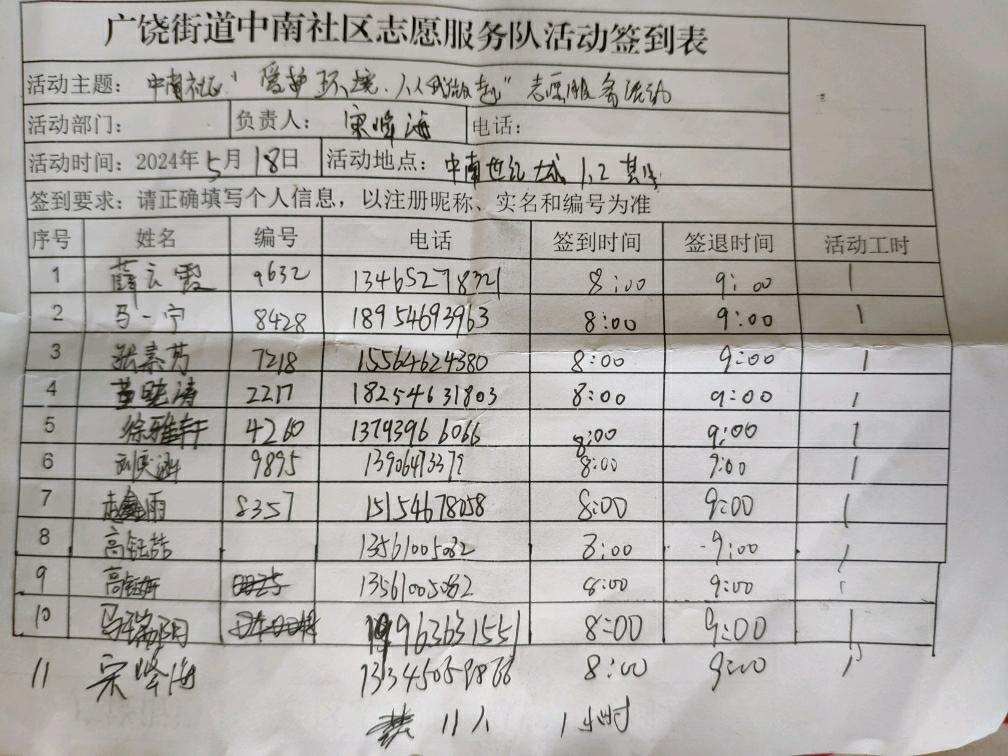 广饶街道中南社区志愿服务队活动签到表
活动主题：中南社区"爱护环境、人人我做起"志愿服务活动
活动部门： 负责人：宗峰海 电话：
活动时间：2024年5月18日 活动地点：中南世纪城1,2基地
签到要求：请正确填写个人信息，以注册昵称、实名和编号为准
序号 姓名 编号 电话 签到时间 签退时间 活动工时
1 薛云霞 9632 13465278321 8:00 9:00 1
2 马一宁 8428 18954693963 8:00 9:00 1
3 张素芳 7218 15564624380 8:00 9:00 1
4 2217 18254631803 8:00 9:00 1
5 徐雅轩 4260 13793966066 8:00 9:00 1
6 9895 1390647337 8:00 9:00 1
7 赵鑫雨 8357 15154678058 8:00 9:00 1
8 高钰喆 13561005082 8:00 9:00 1
9 13561005082 8:00 9:00 1
10 马瑞阳 19963631551 8:00 9:00 1
11 宗峰海 8:00 9:00 1
共11人 1小时